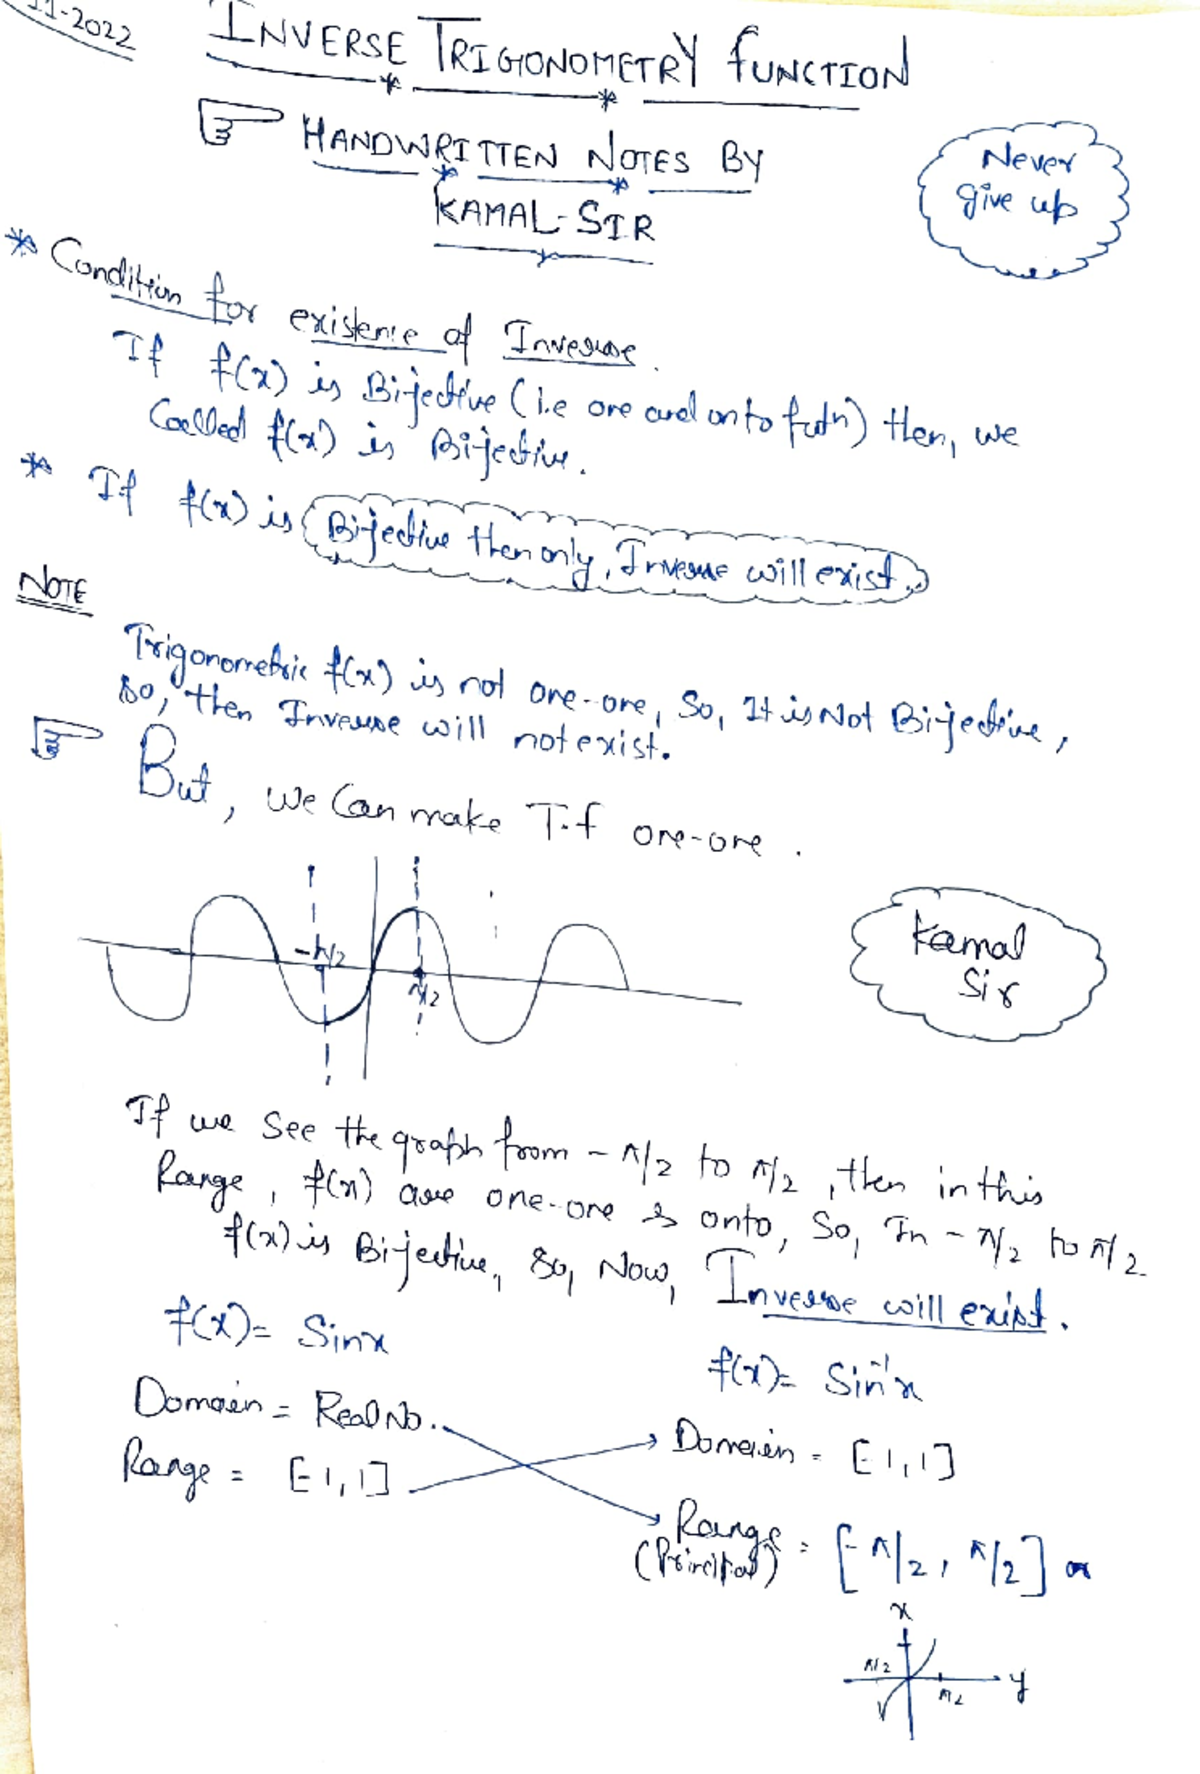 11-2022
INVERSE TRIGONOMETRY FUNCTION
HANDWRITTEN NOTES BY
KAMAL-SIR
Never
give up
* Condition for existence of Inverse.
If f(x) is Bijective (i.e one and onto fuctn) then, we
Called f(x) is Bijective.
* If f(x) is Bijective then only, Inverse will exist.
NOTE
Trigonometric f(x) is not one-one, So, It is Not Bijective,
so, then Inverse will not exist.
But, we Can make T.f one-one.
-π/2
π/2
Kamal
Sir
If we See the graph from -π/2 to π/2, then in this
Range, f(x) are one-one & onto, So, In -π/2 to π/2
f(x) is Bijective, So, Now, Inverse will exist.
f(x)= Sinx
Domain = Real No.
Range = [-1, 1]
f(x)= Sin⁻¹x
Domain = [-1, 1]
Range = [-π/2, π/2] or
(Principal)
x
π/2
π/2
y